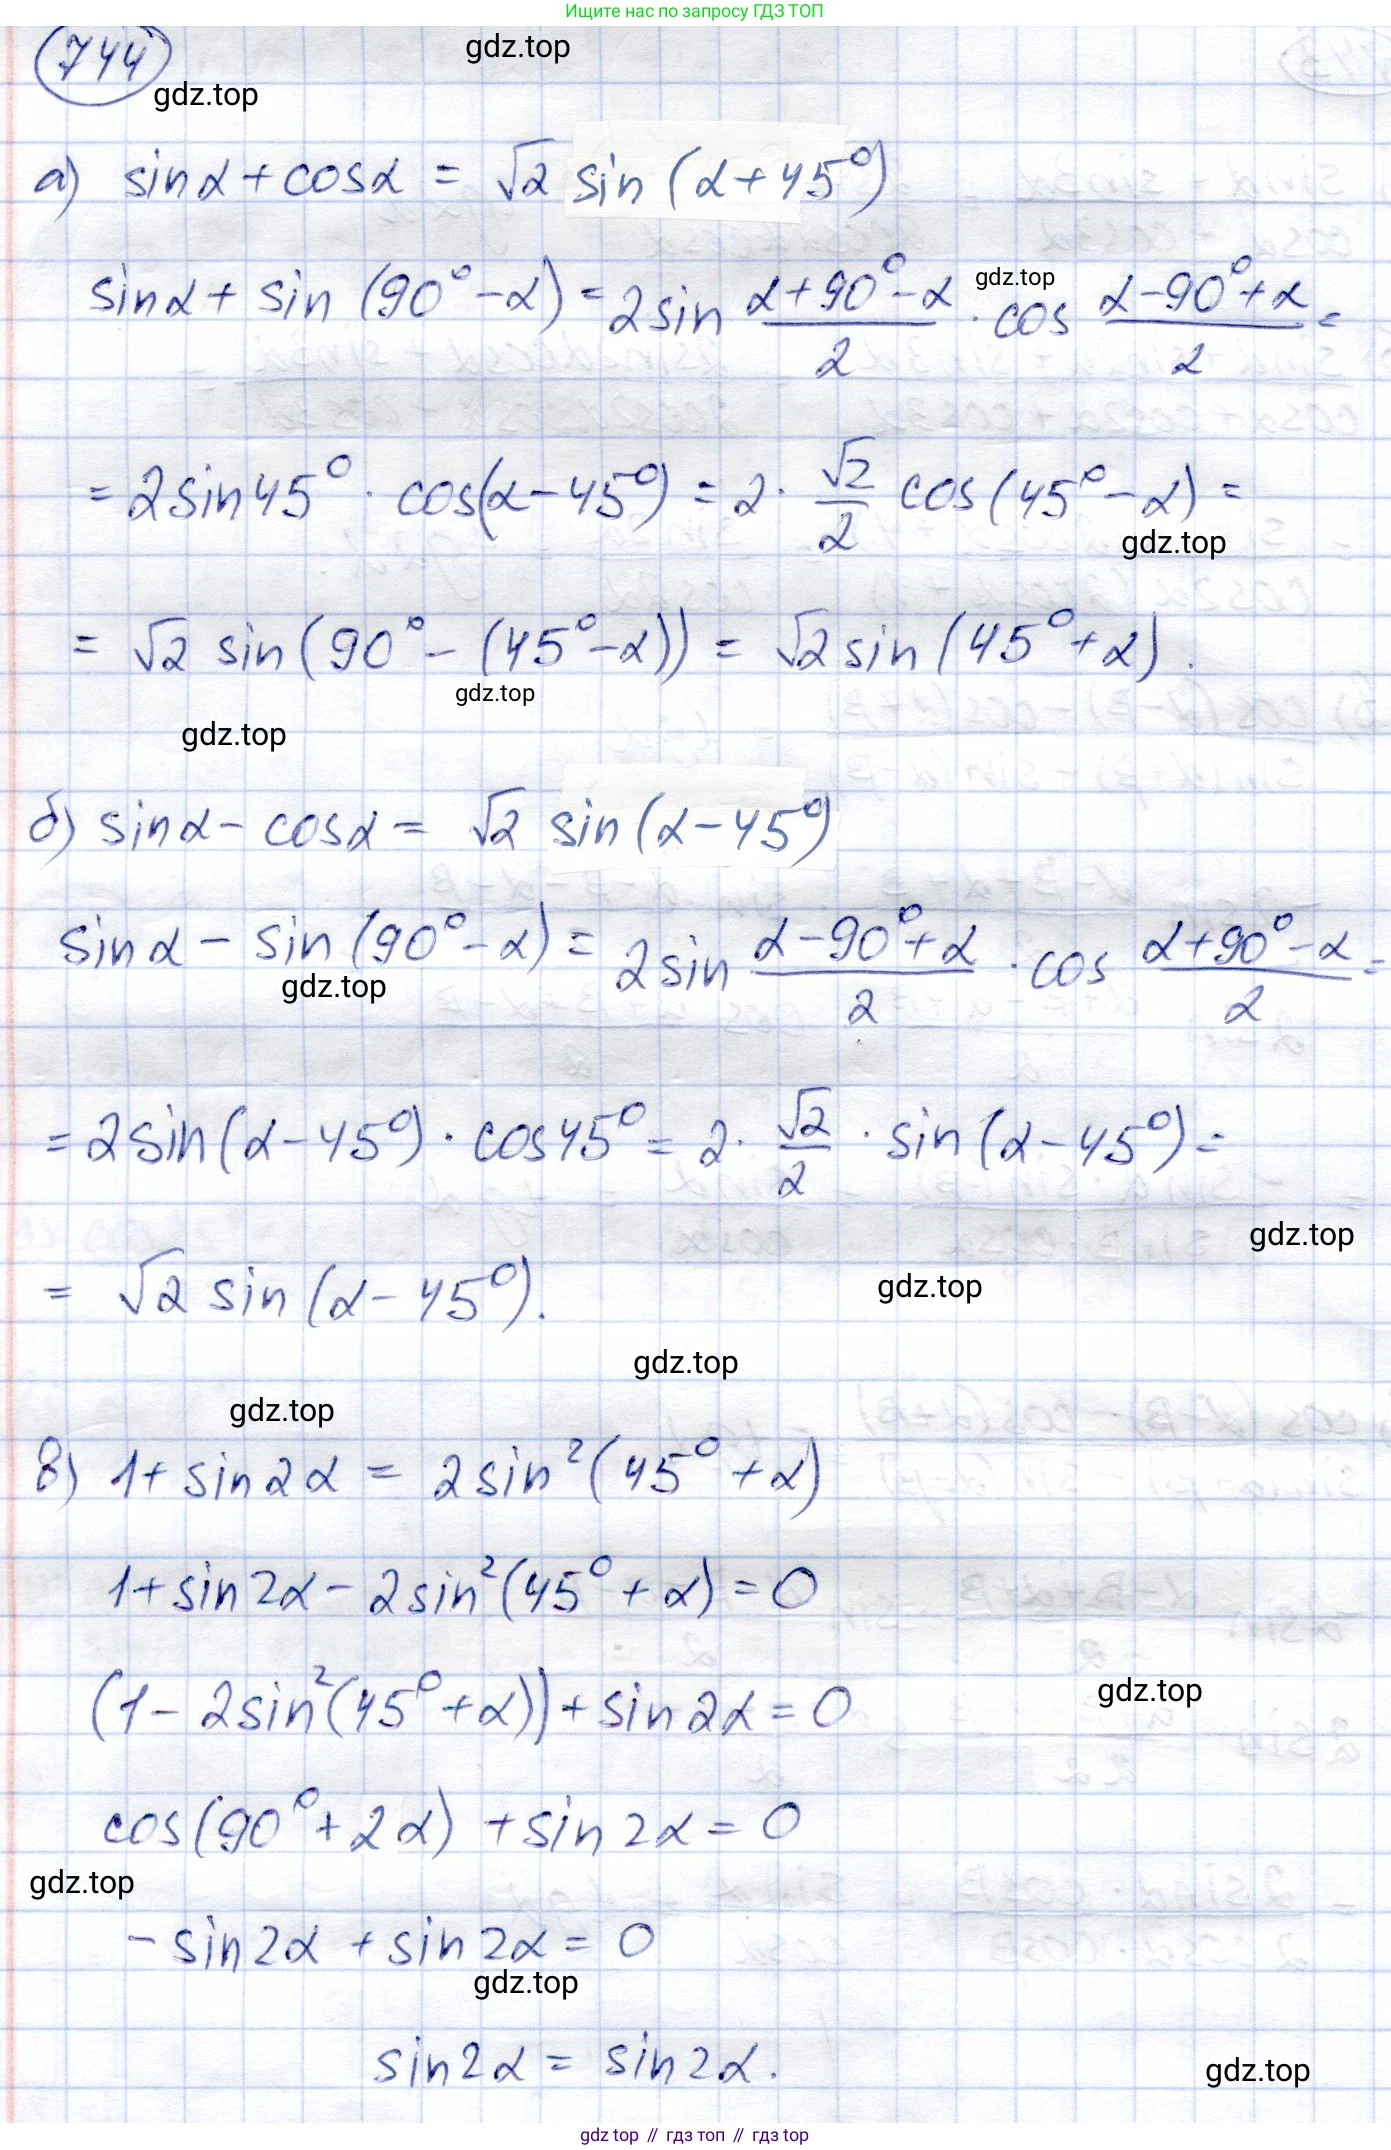 Ищите нас по запросу ГДЗ ТОП
744
gdz.top
gdz.top
а) sinα + cosα = √2 sin(α + 45°)
sinα + sin(90° - α) = 2sin (α + 90° - α)/2 · cos (α - 90° + α)/2 =
gdz.top
= 2sin45° · cos(α - 45°) = 2 · √2/2 cos(45° - α) =
gdz.top
= √2 sin(90° - (45° - α)) = √2 sin(45° + α).
gdz.top
gdz.top
б) sinα - cosα = √2 sin(α - 45°)
sinα - sin(90° - α) = 2sin (α - 90° + α)/2 · cos (α + 90° - α)/2 =
gdz.top
= 2sin(α - 45°) · cos45° = 2 · √2/2 · sin(α - 45°) =
gdz.top
= √2 sin(α - 45°).
gdz.top
gdz.top
gdz.top
в) 1 + sin2α = 2sin²(45° + α)
1 + sin2α - 2sin²(45° + α) = 0
(1 - 2sin²(45° + α)) + sin2α = 0
gdz.top
cos(90° + 2α) + sin2α = 0
gdz.top
- sin2α + sin2α = 0
gdz.top
sin2α = sin2α.
gdz.top
gdz top // гдз топ // гдз top